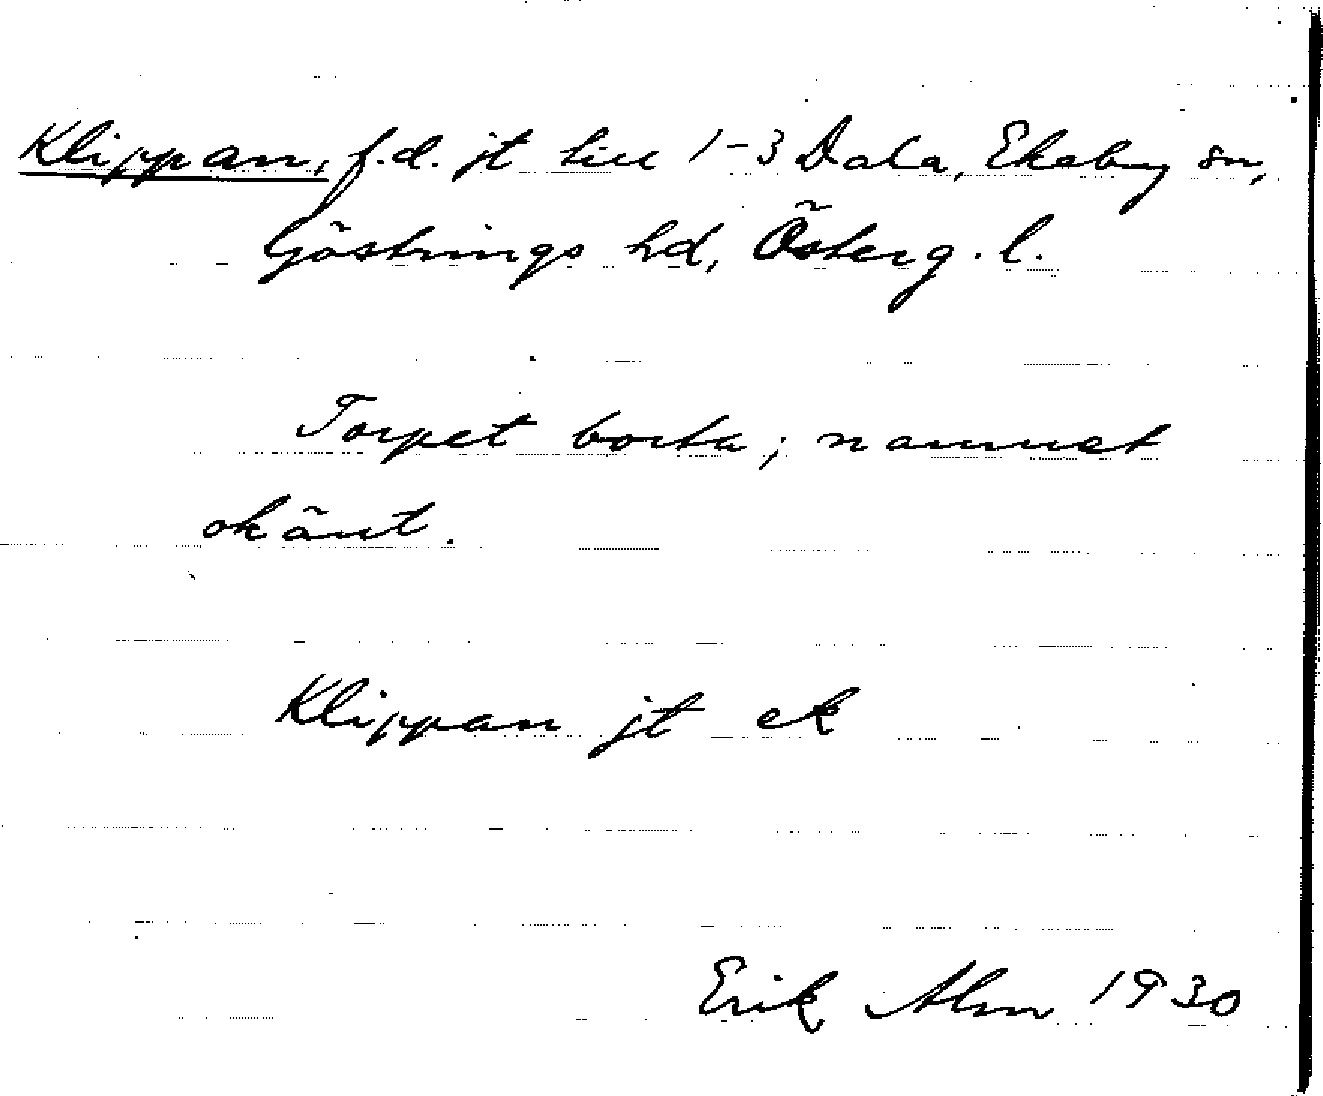 Klippan, f.d. jt till 1-3 Dala, Ekeby sn,
Göstrings hd, Österg. l.
Torpet borta; namnet
okänt.
Klippan jt ek
Erik Alm 1930